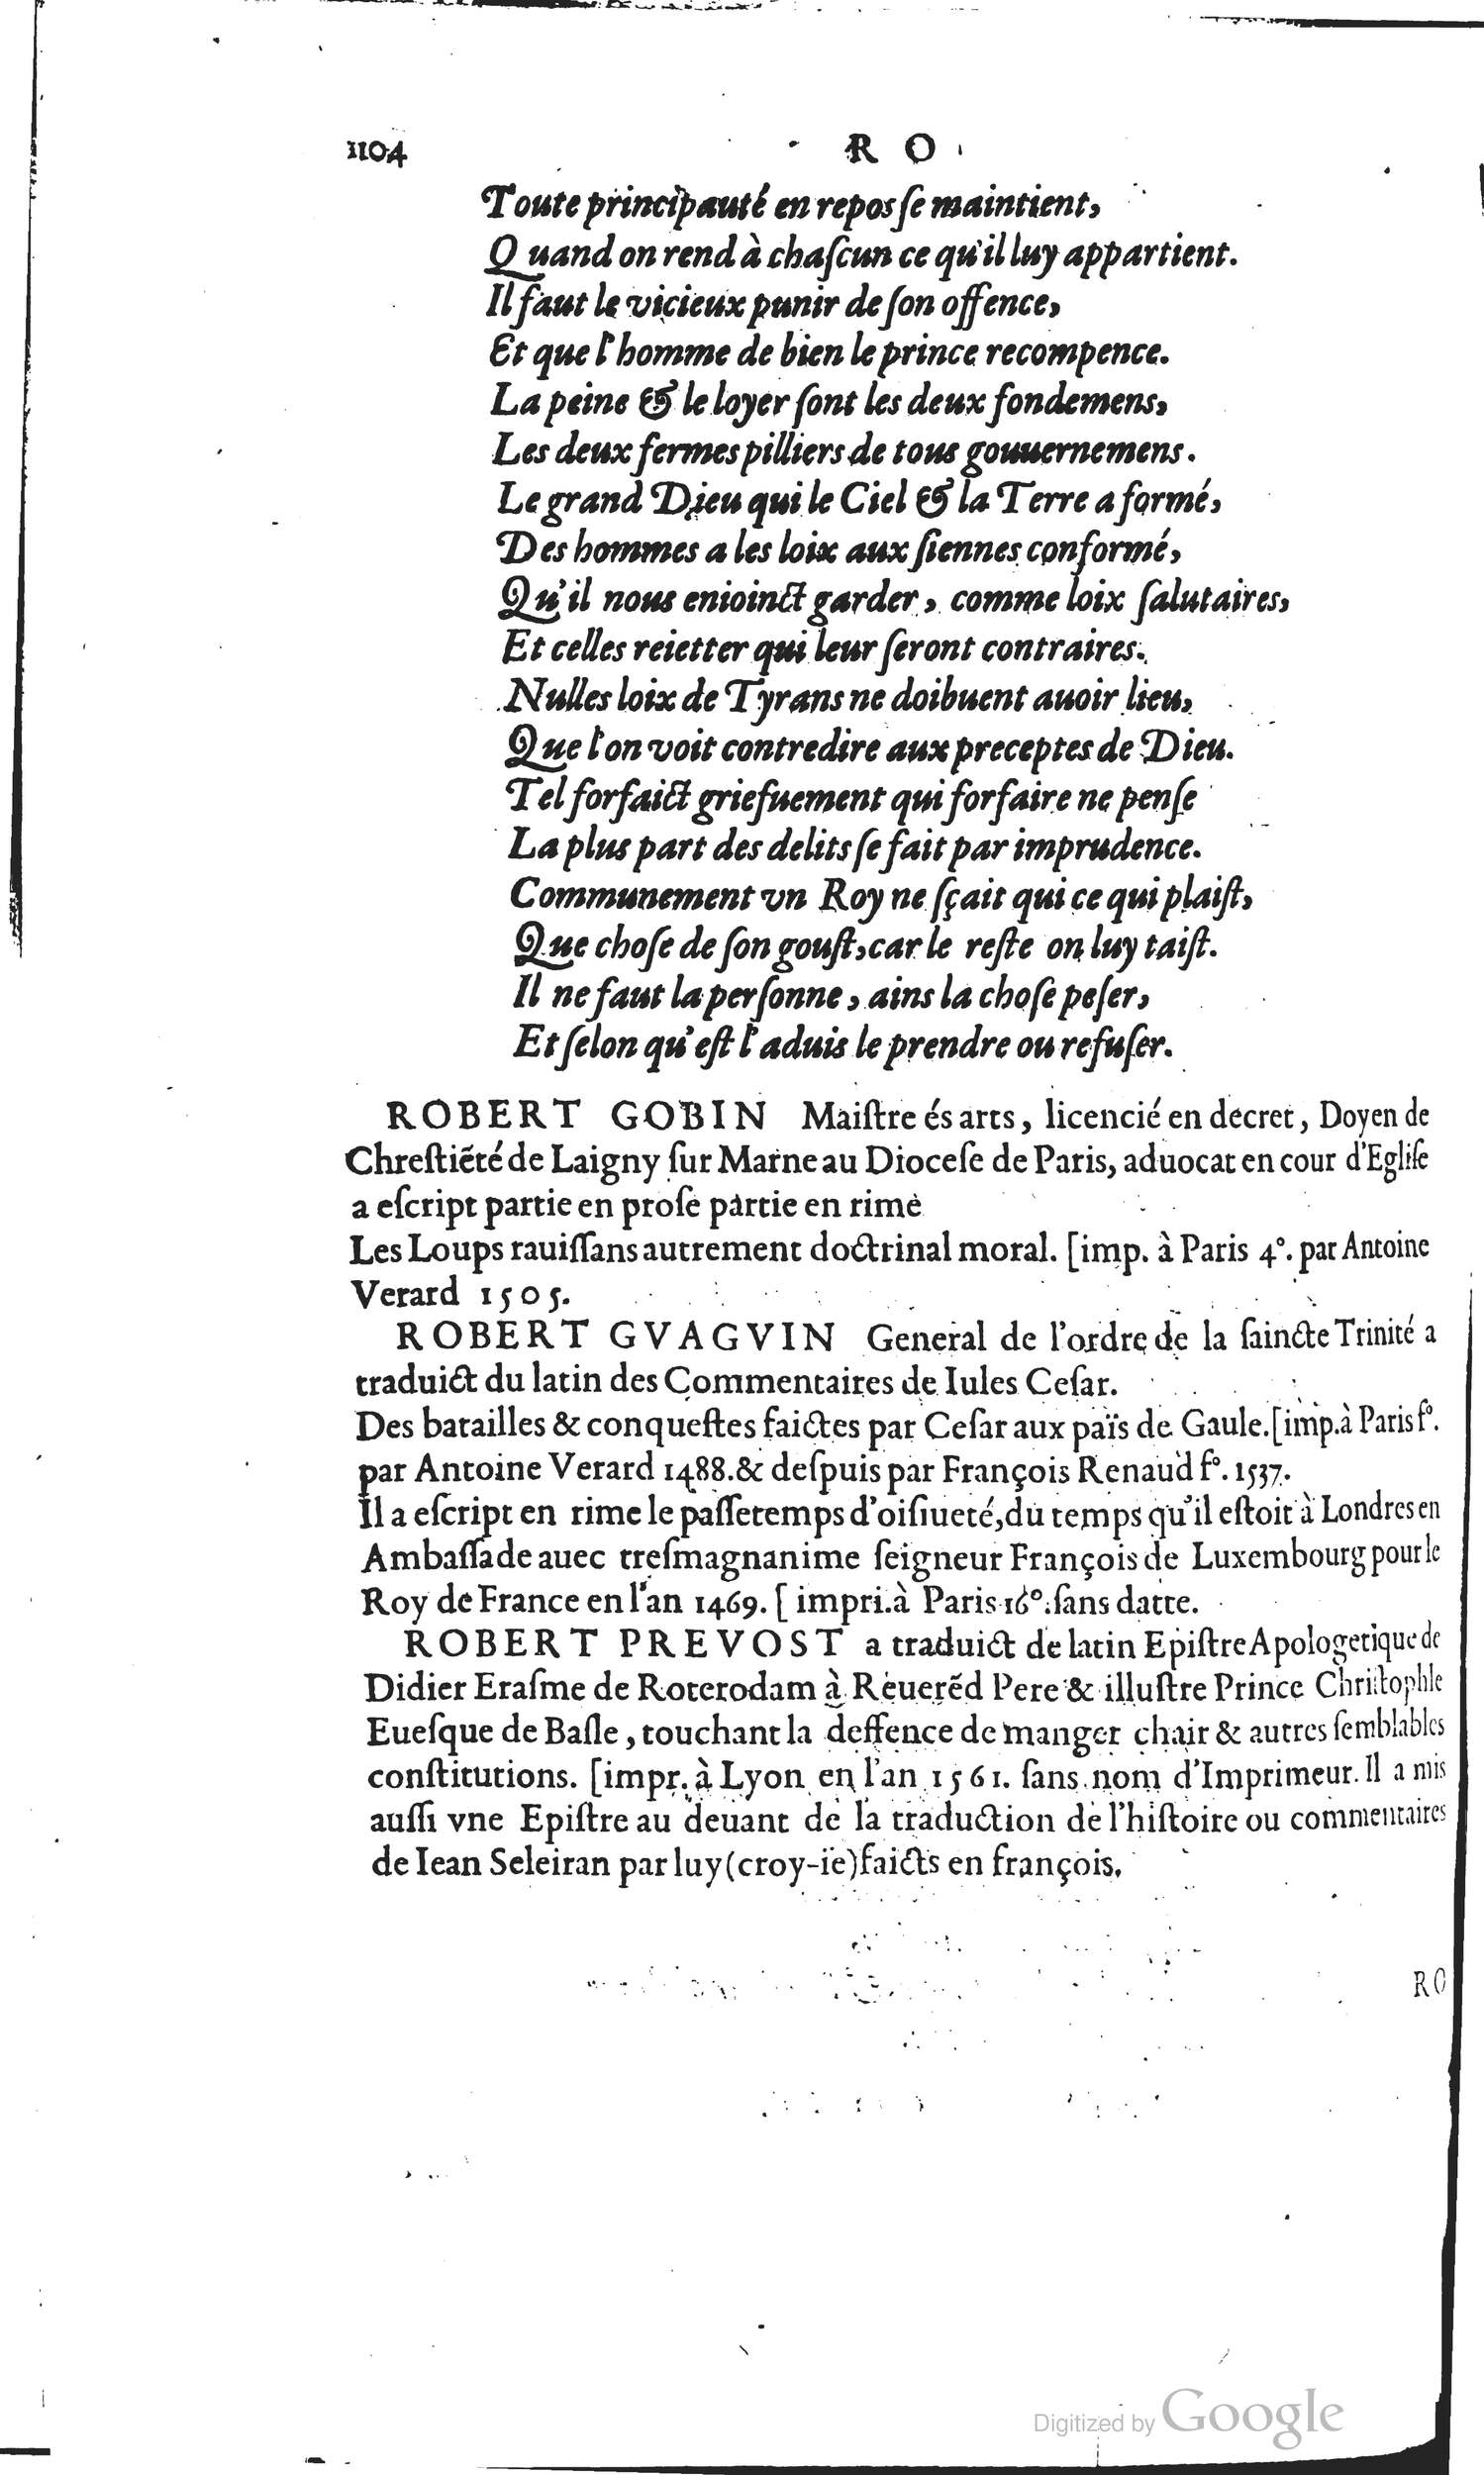 1104 R O
Toute principauté en repos ſe maintient,
Quand on rend à chaſcun ce qu'il luy appartient.
Il faut le vicieux punir de ſon offence,
Et que l'homme de bien le prince recompence.
La peine & le loyer ſont les deux fondemens,
Les deux fermes pilliers de tous gouuernemens.
Le grand Dieu qui le Ciel & la Terre a formé,
Des hommes a les loix aux ſiennes conformé,
Qu'il nous enioinct garder, comme loix ſalutaires,
Et celles reietter qui leur ſeront contraires.
Nulles loix de Tyrans ne doibuent auoir lieu,
Que l'on voit contredire aux preceptes de Dieu.
Tel forfaict griefuement qui forfaire ne penſe
La plus part des delits ſe fait par imprudence.
Communement vn Roy ne ſçait qui ce qui plaiſt,
Que choſe de ſon gouſt, car le reſte on luy taiſt.
Il ne faut la perſonne, ains la choſe peſer,
Et ſelon qu'eſt l'aduis le prendre ou refuſer.
ROBERT GOBIN Maiſtre és arts, licencié en decret, Doyen de
Chreſtiẽté de Laigny ſur Marne au Dioceſe de Paris, aduocat en cour d'Egliſe
a eſcript partie en proſe partie en rime
Les Loups rauiſſans autrement doctrinal moral. [imp. à Paris 4°. par Antoine
Verard 1505.
ROBERT GVAGVIN General de l'ordre de la ſaincte Trinité a
traduict du latin des Commentaires de Iules Ceſar.
Des batailles & conqueſtes faictes par Ceſar aux païs de Gaule. [imp. à Paris f°.
par Antoine Verard 1488. & deſpuis par François Renaud f°. 1537.
Il a eſcript en rime le paſſetemps d'oiſiueté, du temps qu'il eſtoit à Londres en
Ambaſſade auec treſmagnanime ſeigneur François de Luxembourg pour le
Roy de France en l'an 1469. [ impri. à Paris 16°. ſans datte.
ROBERT PREVOST a traduict de latin Epiſtre Apologetique de
Didier Eraſme de Roterodam à Reuerẽd Pere & illuſtre Prince Chriſtophle
Eueſque de Baſle, touchant la deffence de manger chair & autres ſemblables
conſtitutions. [impr. à Lyon en l'an 1561. ſans nom d'Imprimeur. Il a mis
auſſi vne Epiſtre au deuant de la traduction de l'hiſtoire ou commentaires
de Iean Seleiran par luy (croy-ie) faicts en françois.
RO
Digitized by Google